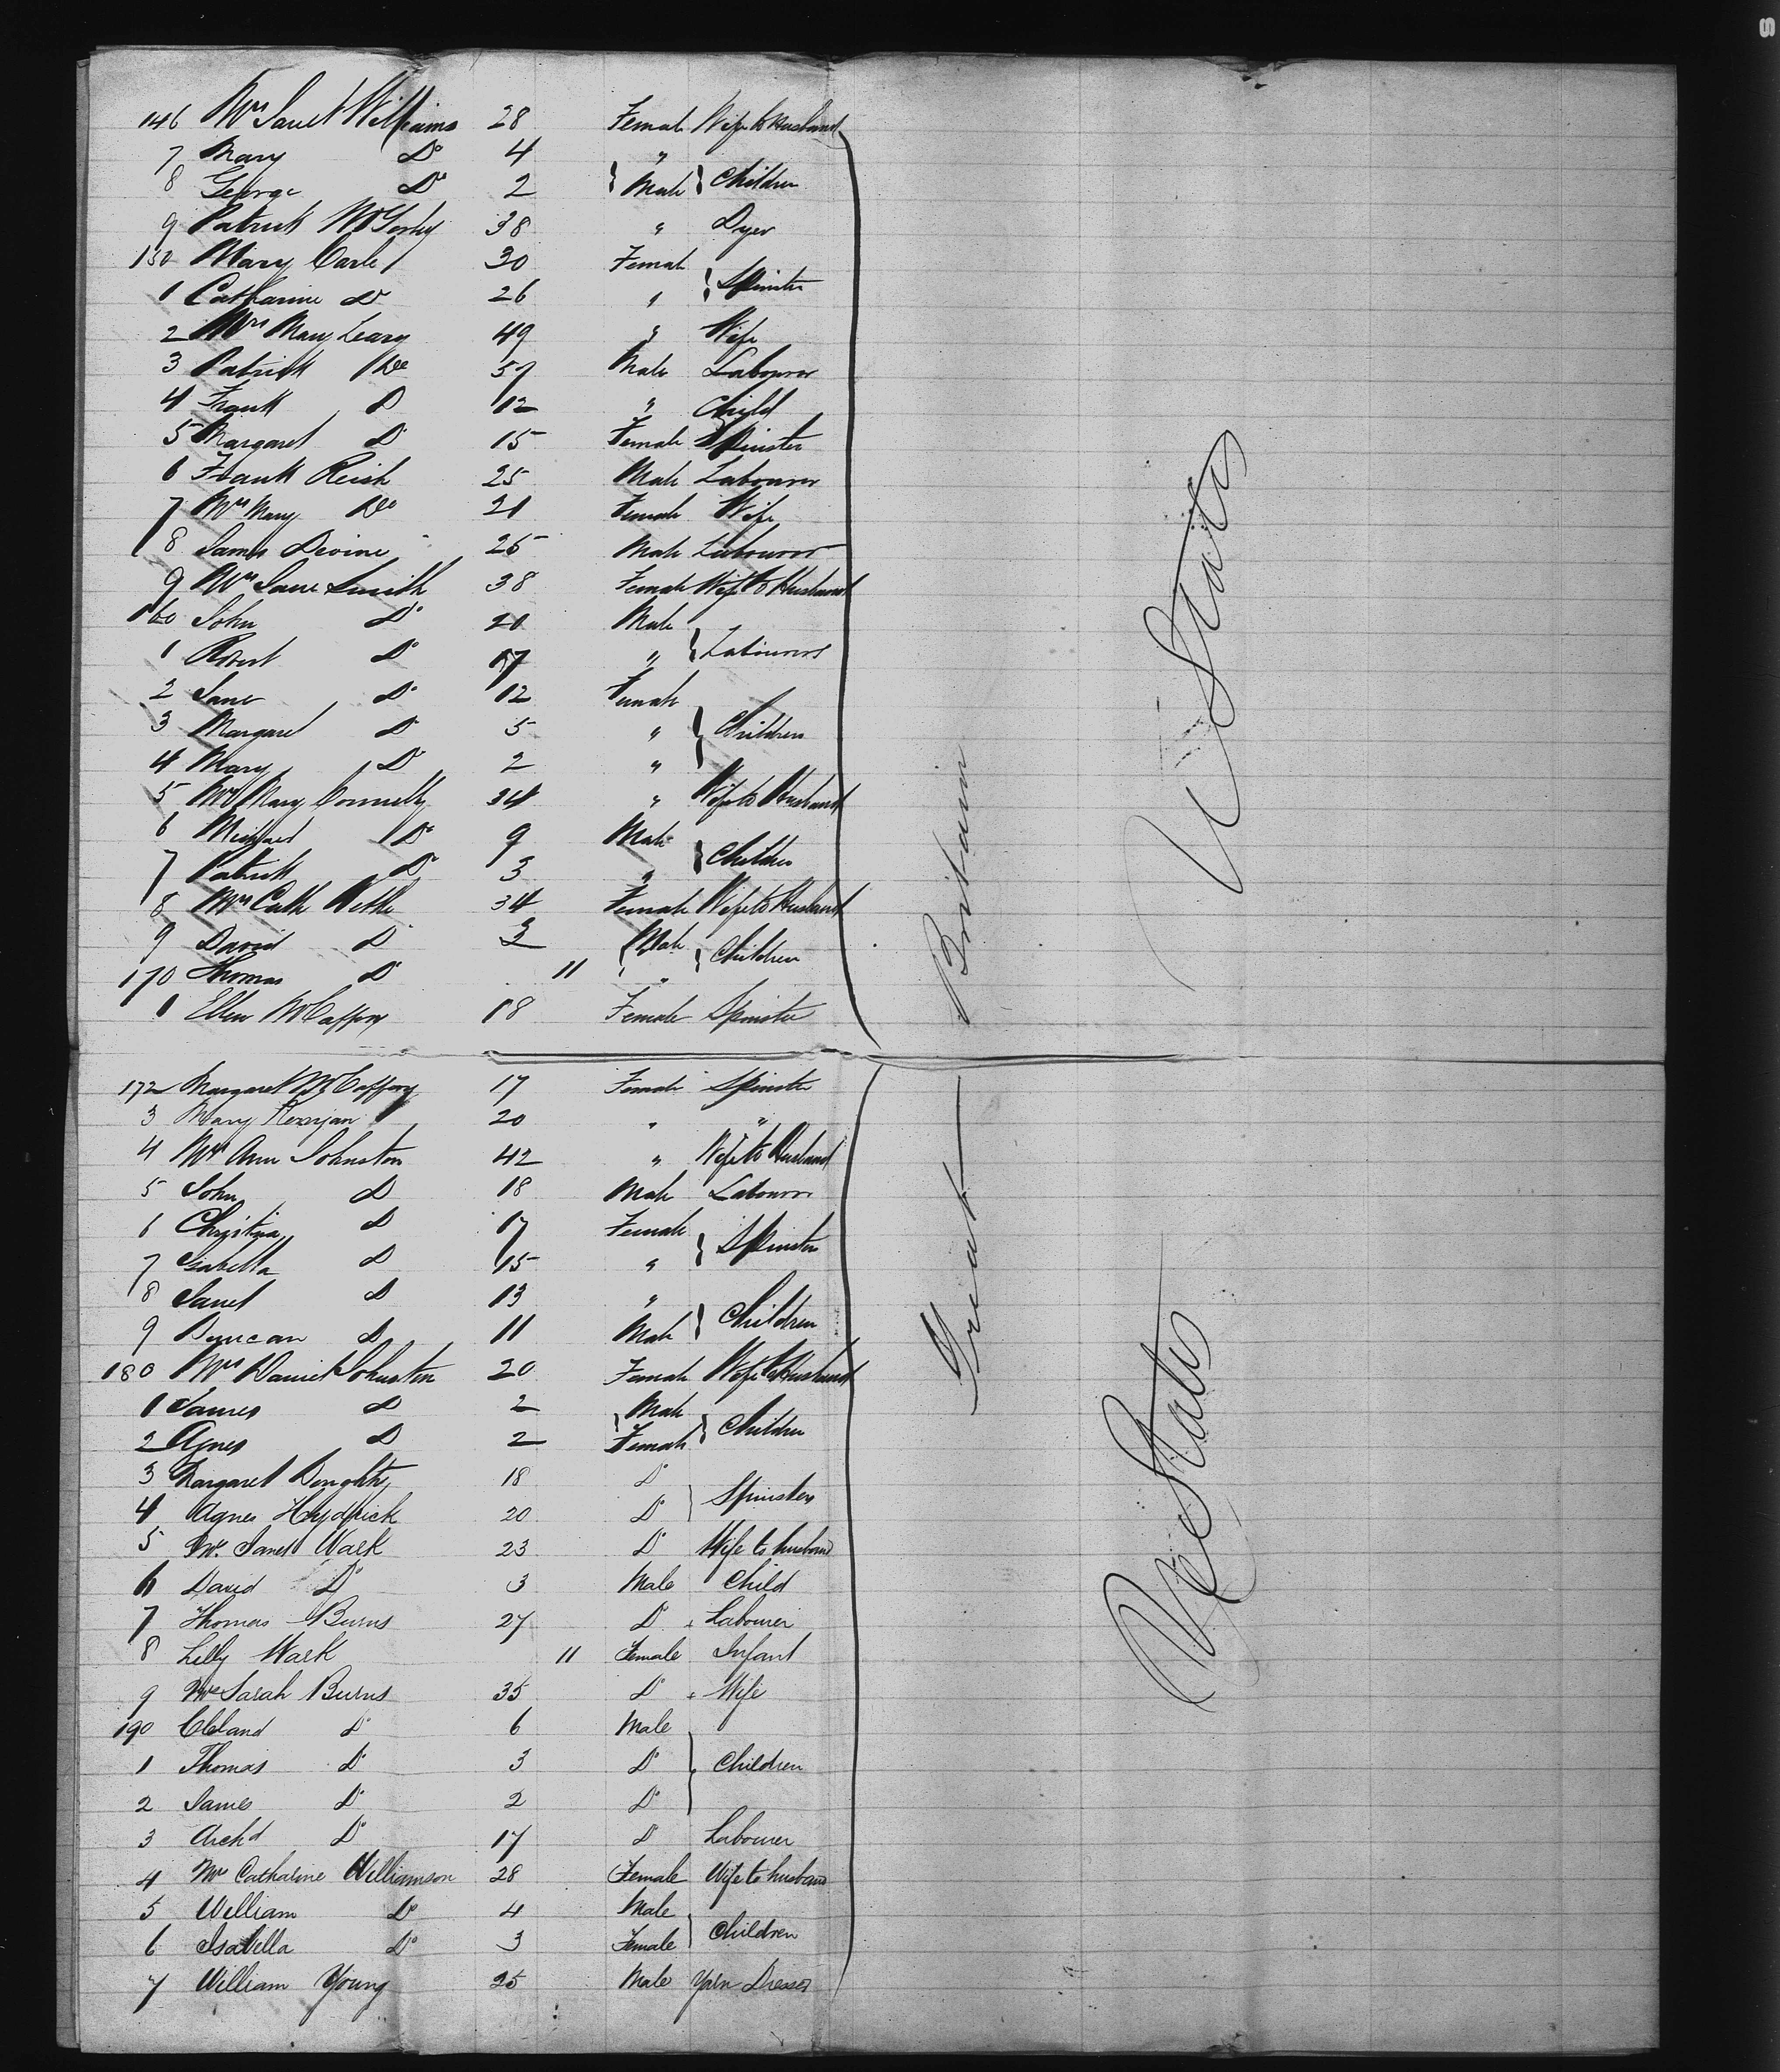 146 Mrs Janet Williams 28 Female Wife to Husband
7 Mary Do 4 "
8 George Do 2 Male } Children
9 Patrick 38 " Dyer
150 Mary Carle 30 Female
1 Catharine Do 26 " } Spinster
2 Mrs Mary Leary 49 " Wife
3 Patrick Do Male Labourer
4 Frank D 12 " Child
5 Margaret D 15 Female Spinster
6 Frank Reish 25 Male Labourer
7 Mrs Mary Do 21 Female Wife
8 James Devine 25 Male Labourer
9 Mrs Jane Smith 38 Female Wife to Husband
160 John Do 20 Male
1 Robert Do 17 " } Labourers
2 Jane Do 12 Female
3 Margaret D 5 " } Children
4 Mary D 2 "
5 Mrs Mary Connelly 34 " Wife to Husband
6 Michael Do 9 Male
7 Patrick Do 3 " } Children
8 Mrs Cath 34 Female Wife to Husband
9 David D Male } Children
170 Thomas Do 11 "
1 Ellen McCaffory 18 Female Spinster
172 Margaret McCaffory 17 Female Spinster
3 Mary 20 " "
4 Mrs Ann Johnston 42 " Wife to Husband
5 John D 18 Male Labourer
6 Christina D 17 Female
7 Isabella D 15 " } Spinsters
8 Janet D 13 "
9 Duncan D 11 Male } Children
180 Mrs Daniel Johnston 20 Female Wife to Husband
1 James D 2 Male
2 Agnes D 2 Female } Children
3 Margaret Doughty 18 Do
4 Agnes Hydrick 20 Do } Spinsters
5 Mrs Janet Wark 23 Do Wife to husband
6 David Do 3 Male Child
7 Thomas Burns 27 Do Labourer
8 Lilly Wark 11 Female Infant
9 Mrs Sarah Burns 35 Do Wife
190 Cleland Do 6 Male
1 Thomas Do 3 Do } Children
2 James Do 2 Do
3 Archd Do 17 Do Labourer
4 Mrs Catharine Williamson 28 Female Wife to husband
5 William Do 4 Male
6 Isabella Do 3 Female } Children
7 William Young 25 Male Yarn Dresser
Great Britain
U States
U States